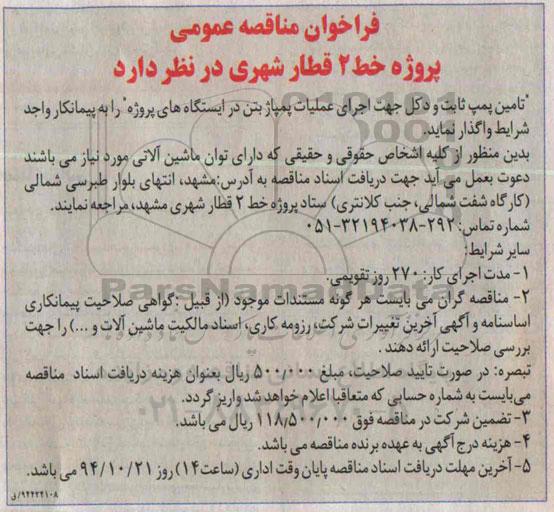 فراخوان مناقصه عمومی
پروژه خط۲ قطار شهری در نظر دارد
"تامین پمپ ثابت و دکل جهت اجرای عملیات پمپاژ بتن در ایستگاه های پروژه" را به پیمانکار واجد
شرایط واگذار نماید.
بدین منظور از کلیه اشخاص حقوقی و حقیقی که دارای توان ماشین آلاتی مورد نیاز می باشند
دعوت بعمل می آید جهت دریافت اسناد مناقصه به آدرس:مشهد، انتهای بلوار طبرسی شمالی
(کارگاه شفت شمالی، جنب کلانتری) ستاد پروژه خط ۲ قطار شهری مشهد،مراجعه نمایند.
شماره تماس: ۲۹۲-۳۲۱۹۴۰۳۸-۰۵۱
سایر شرایط:
۱- مدت اجرای کار: ۲۷۰ روز تقویمی.
۲- مناقصه گران می بایست هر گونه مستندات موجود (از قبیل :گواهی صلاحیت پیمانکاری
اساسنامه و آگهی آخرین تغییرات شرکت، رزومه کاری، اسناد مالکیت ماشین آلات و ...) را جهت
بررسی صلاحیت ارائه دهند .
تبصره: در صورت تایید صلاحیت، مبلغ ۵۰۰/۰۰۰ ریال بعنوان هزینه دریافت اسناد مناقصه
می‌بایست به شماره حسابی که متعاقبا اعلام خواهد شد واریز گردد.
۳- تضمین شرکت در مناقصه فوق ۱۱۸/۵۰۰/۰۰۰ ریال می باشد.
۴- هزینه درج آگهی به عهده برنده مناقصه می باشد.
۵- آخرین مهلت دریافت اسناد مناقصه پایان وقت اداری (ساعت۱۴) روز ۹۴/۱۰/۲۱ می باشد.
۹۴۴۲۴۱۰۸/ق
ParsNamadData